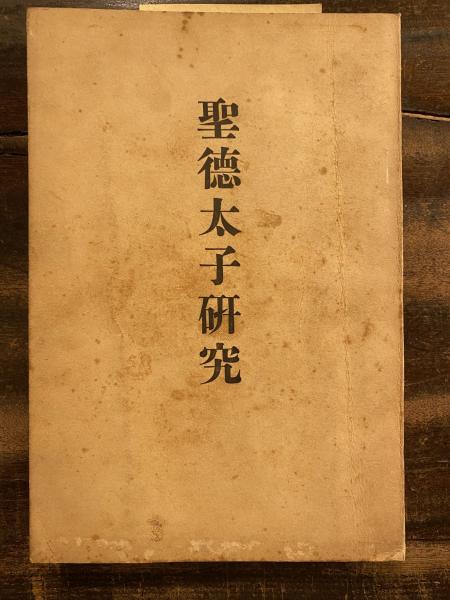 聖德太子硏究